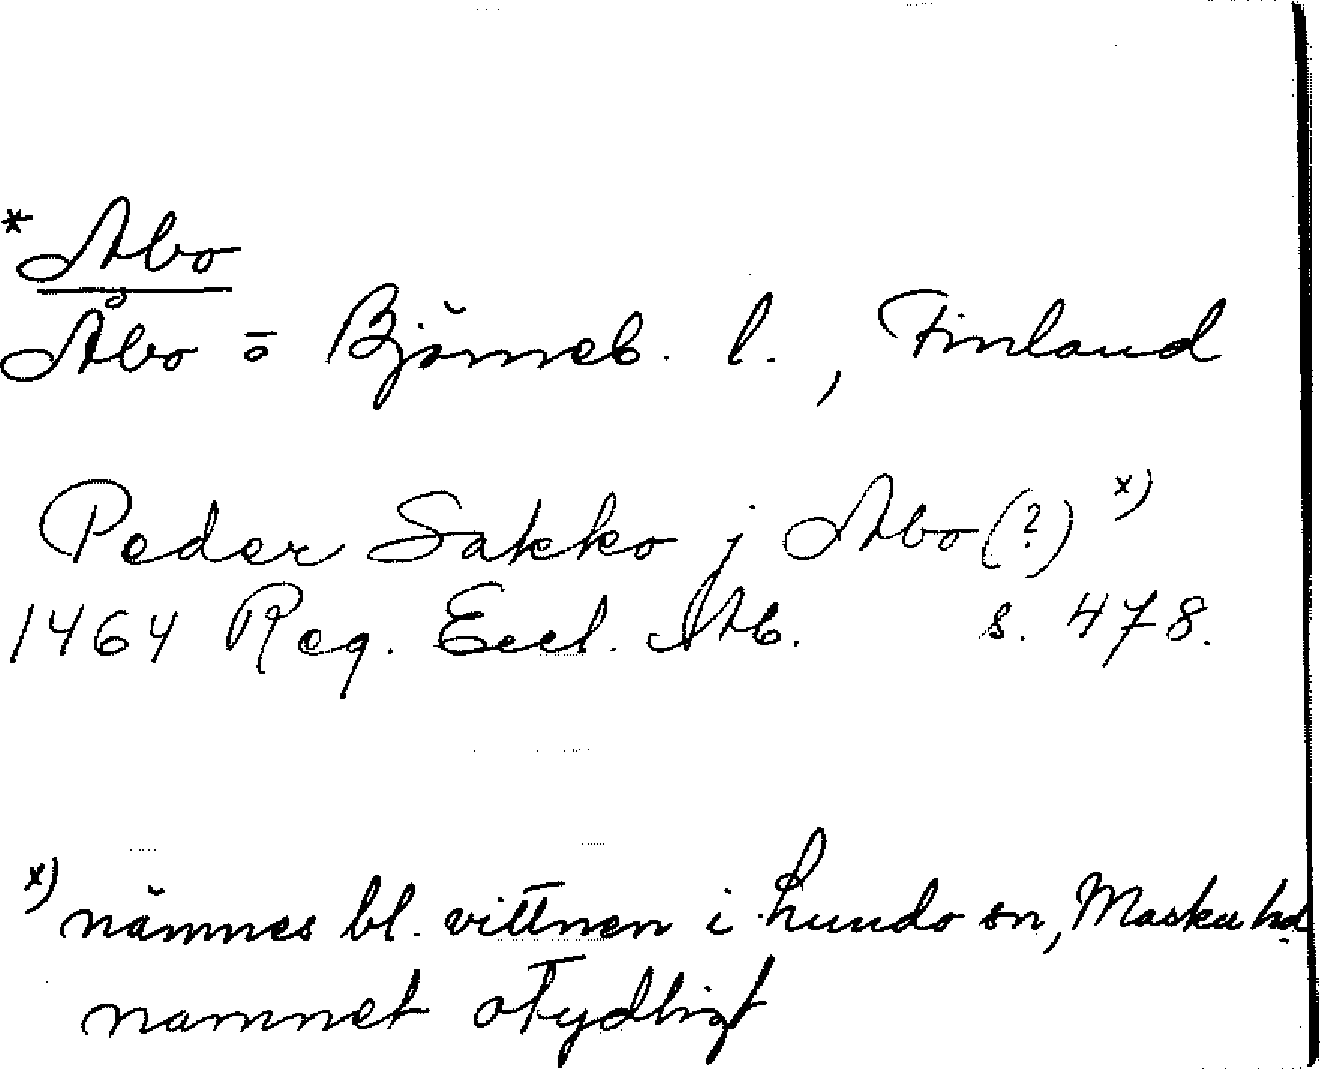 *Abo
Åbo o Björneb. l., Finland
Peder Sakko j Abo (?) x)
1464 Reg. Eccl. Ab. s. 478.
x) nämnes bl. vittnen i Lundo sn, Masku hd
namnet otydligt